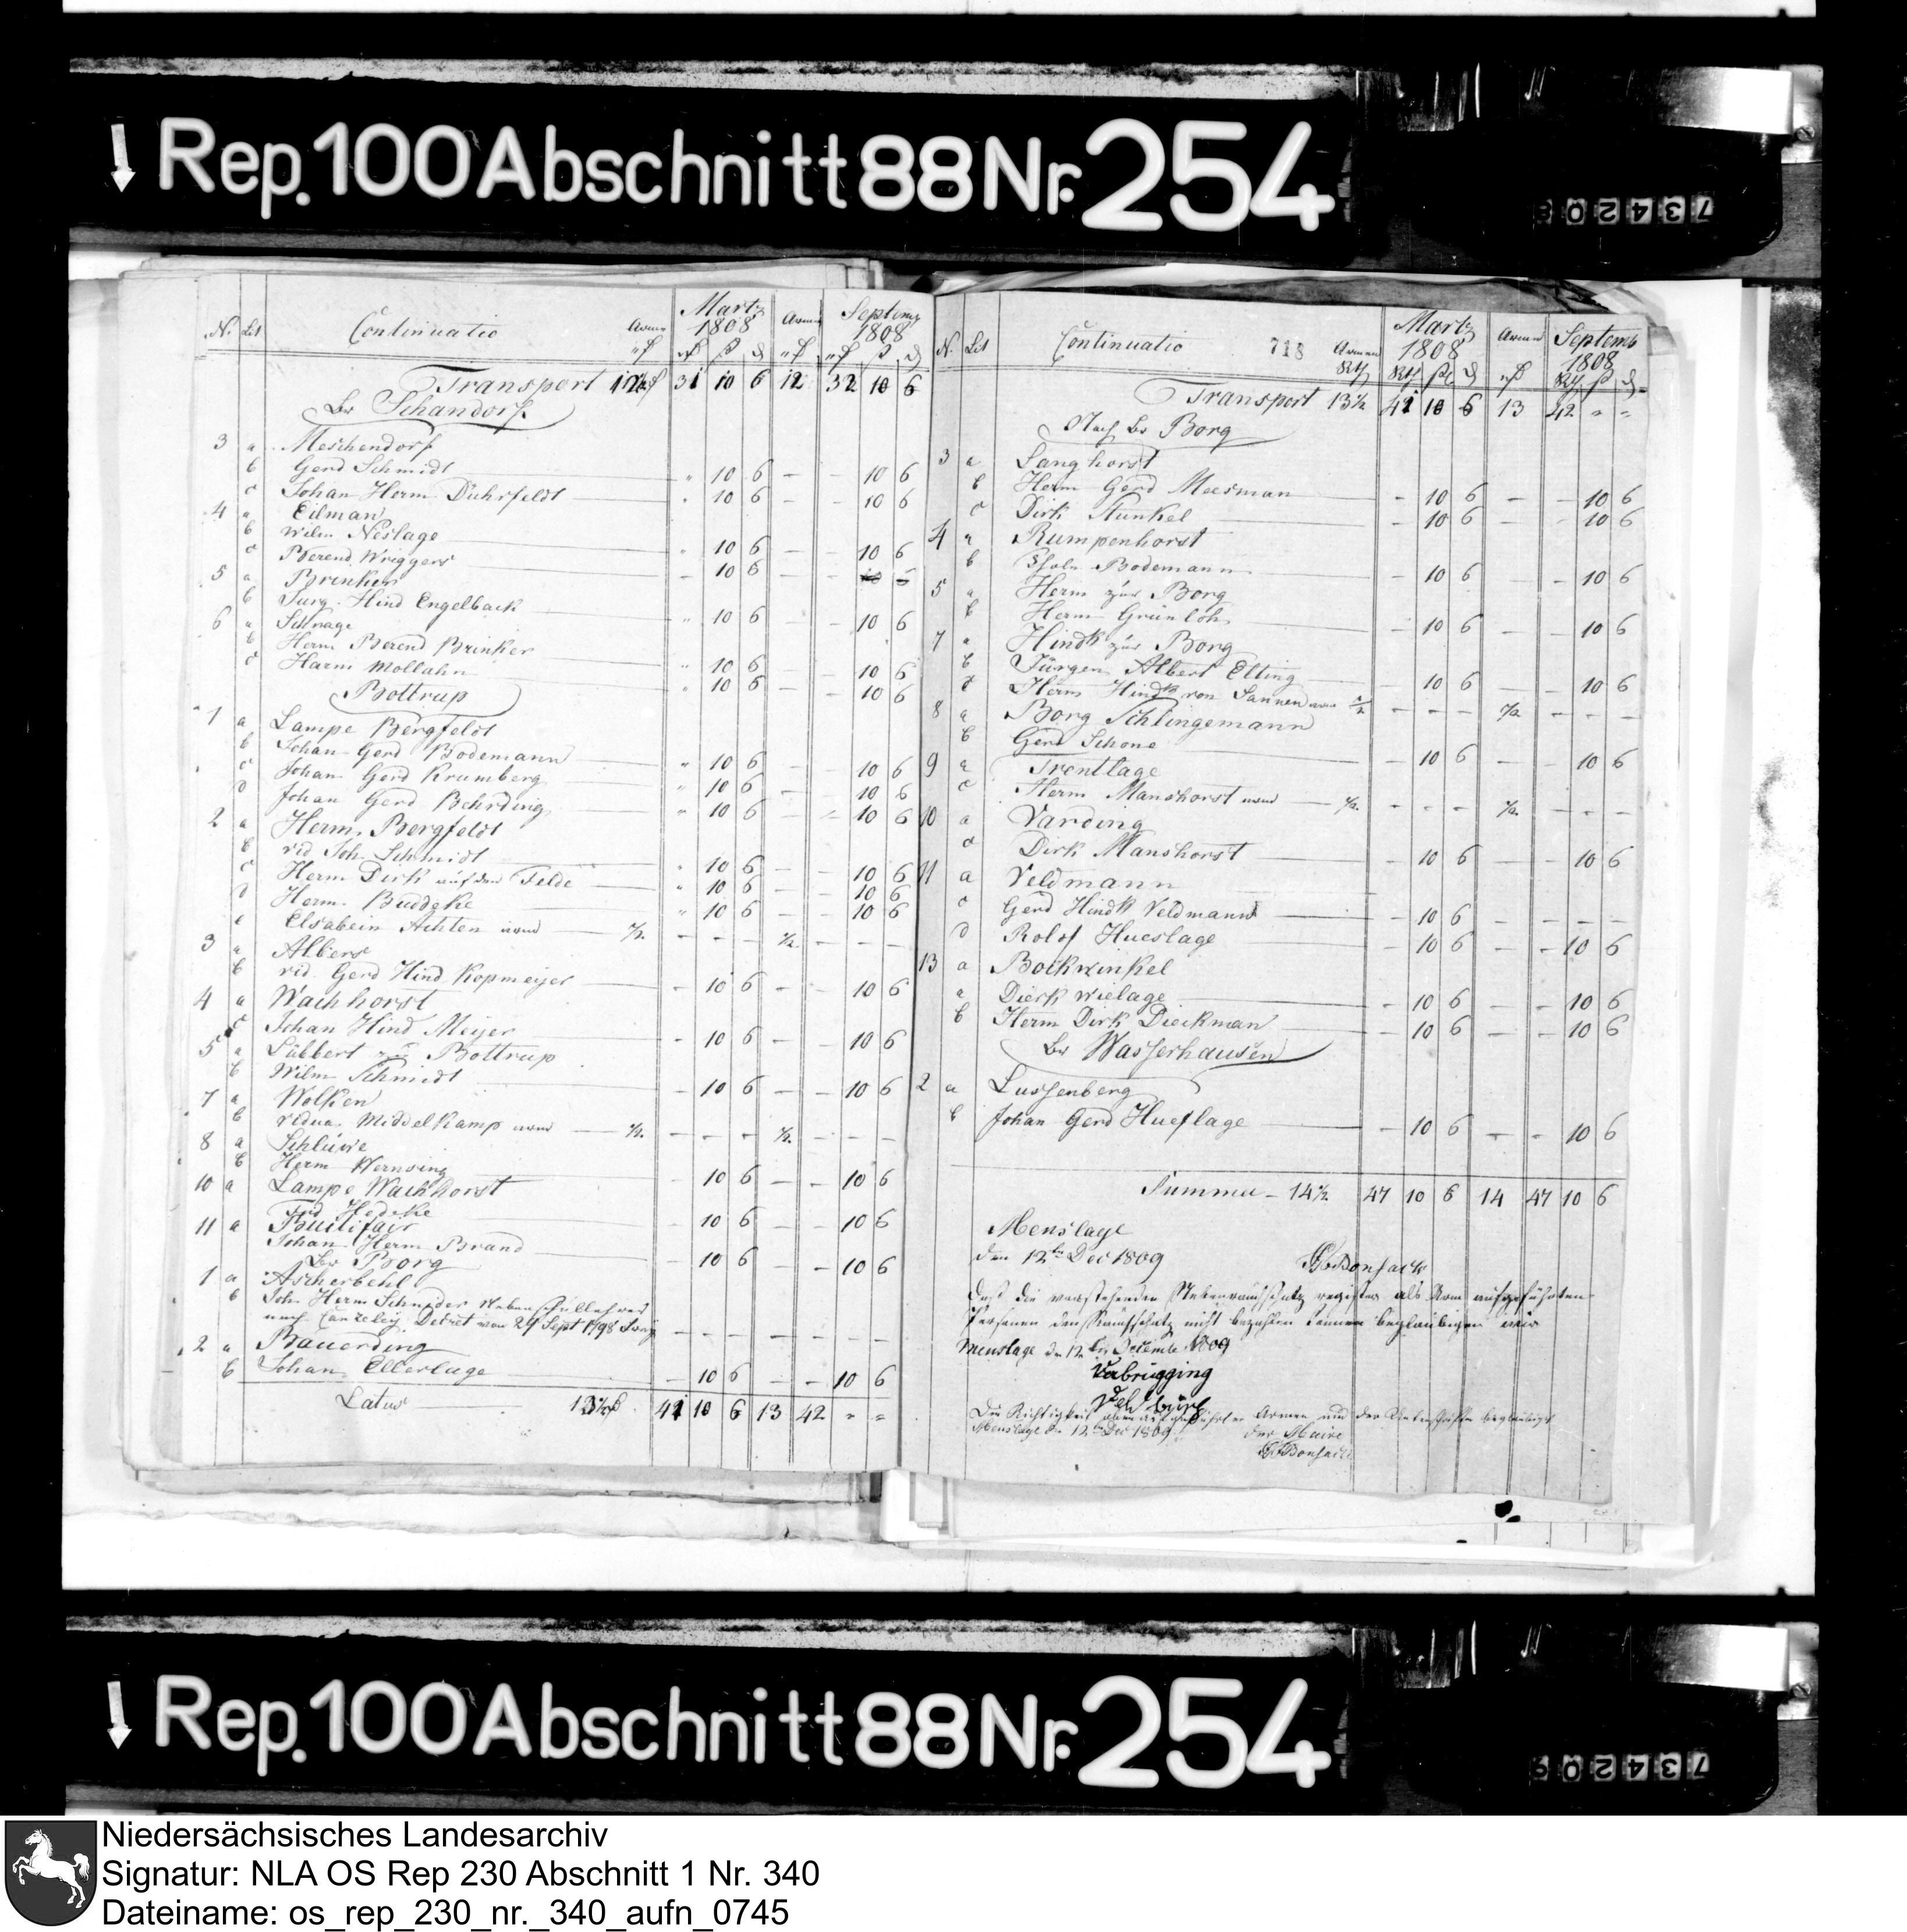 ↓ Rep. 100 Abschnitt 88 Nr. 254
734208
N. Lit Continuatio Armen Martz 1808 Armen Septemb 1808
Transport 31 10 6 12 32 10 6
Br Schandorf
3 a Meschendorf
b Gerd Schmidt — " 10 6 — — 10 6
c Johan Herm Dührfeldt — " 10 6 — — 10 6
4 a Eilman
b Wilm Neslage — " 10 6 — — 10 6
c Berend Wriggers — 10 6 — —
5 a Brinker
b Jurg. Hind Engelback — " 10 6 — — 10 6
6 a Schrage
b Herm Berend Brinker — " 10 6 — — 10 6
c Harm Mollahn — " 10 6 — — 10 6
Bottrup
1 a Lampe Bergfeldt
b Johan Gerd Bodemann — " 10 6 — — 10 6
c Johan Gerd Krumberg — " 10 6 — — 10 6
d Johan Gerd Behrding — " 10 6 — — 10 6
2 a Herm. Bergfeldt
b vid Joh. Schmidt — " 10 6 — — 10 6
c Herm Dirk auf dem Felde — " 10 6 — — 10 6
d Herm. Buddeke — " 10 6 — — 10 6
e Elsabein Achten arm — ½ — — — ½ — — —
3 a Albers
b vid. Gerd Hind Kopmeyer — — 10 6 — — 10 6
4 a Wachhorst
c Johan Hind Meyer — — 10 6 — — 10 6
5 a Lübbert zu Bottrup
b Wilm Schmidt — — 10 6 — — 10 6
7 a Wolken
b vidua Middelkamp arm — ½ — — — ½ — — —
8 a Schlüwe
b Herm Wernsing — — 10 6 — — 10 6
10 a Lampe Wachhorst
Hedeke — — 10 6 — — 10 6
11 a
Johan Herm Brand — — 10 6 — — 10 6
Br Borg
1 a Ascherbehl
b Joh. Herm Schneider Neben Schullehrer
nach Canzeley Decret von 24 Sept 1798 — — — — — — —
2 a Bauerding
b Johan Ellerlage — — 10 6 — — 10 6
Latus 13½ 41 10 6 13 42 " "
N. Lit Continuatio 718 Armen Martz 1808 Armen Septemb 1808
Transport 13½ 41 10 6 13 42 " "
Noch Br Borg
3 a Langhorst
b Herm Gerd Meesman — — 10 6 — — 10 6
c Dirk Stunkel — — 10 6 — — 10 6
4 a Rumpenhorst
b Bodemann — — 10 6 — — 10 6
5 a Herm zur Borg
b Herm Grünloh — — 10 6 — — 10 6
7 a Hindk zur Borg
b Jürgen Albert Elting — — 10 6 — — 10 6
c Herm Hindk von Lannen arm ½ — — — ½ — — —
8 a Borg Schlingemann
b Gerd Schone — — 10 6 — — 10 6
9 a Trentlage
c Herm Manshorst arm — ½ — — — ½ — — —
10 a Varding
c Dirk Manshorst — — 10 6 — — 10 6
11 a Veldmann
c Gerd Hindk Veldmann — — 10 6 — — — —
d Rolof Hueslage — — 10 6 — — 10 6
13 a Bockwinkel
a Dierk Wielage — — 10 6 — — 10 6
b Herm Dirk Dieckman — — 10 6 — — 10 6
Br Wasserhausen
2 a Lussenberg
b Johan Gerd Hueslage — — 10 6 — — 10 6
Summa — 14½ 47 10 6 14 47 10 6
Menslage
den 12ten Dec 1809
Bonsack
Daß die vorstehenden Nebenrauchschatz register als Arm aufgeführten
Personen den Rauchschatz nicht bezahlen können beglaubigen wir
Menslage den 12ten Decembr 1809
Verbrügging
Die Richtigkeit oben aufgeführter Armen und der Unterschriften beglaubigt
Menslage den 12ten Dec 1809
der Maire
Bonsack
↓ Rep. 100 Abschnitt 88 Nr. 254
734209
Niedersächsisches Landesarchiv
Signatur: NLA OS Rep 230 Abschnitt 1 Nr. 340
Dateiname: os_rep_230_nr._340_aufn_0745